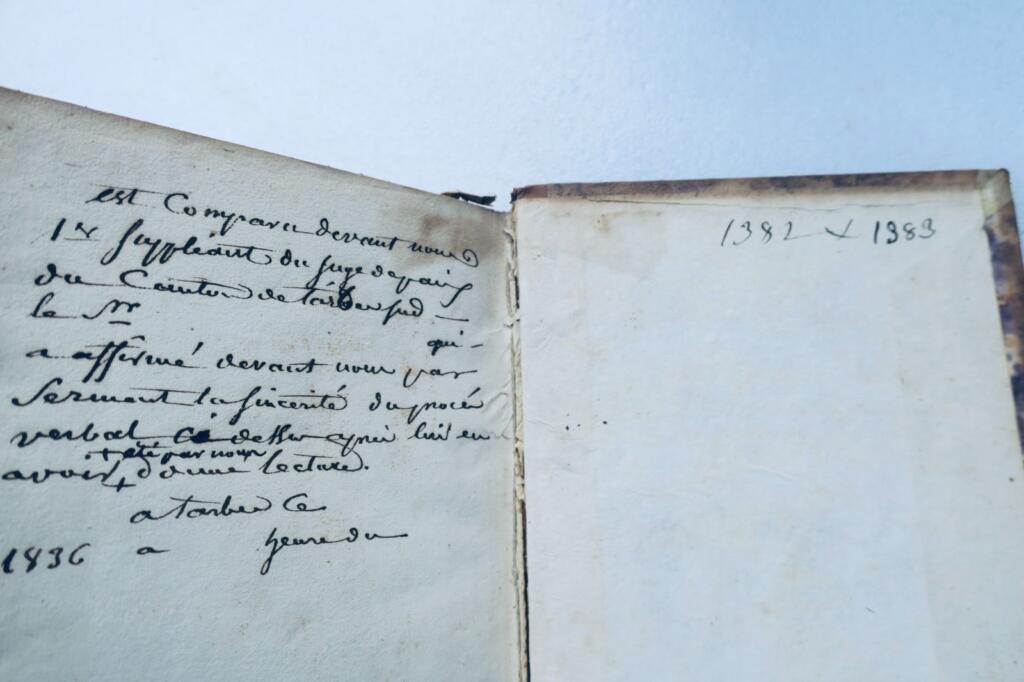 est Comparu devant nous
1er suppléant du juge de paix
du Canton de tarbes sud —
le Sr
qui -
a affirmé devant nous par
Serment la sincerité du procés
verbal ci dessus après lui en
+ été par nous
avoir + donné lecture.
a tarbes Ce
1836 a heure du
1382 x 1383